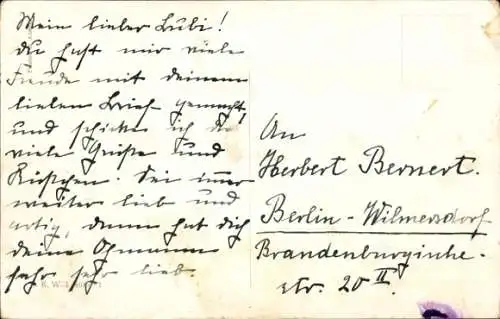 Mein lieber Bubi!
Du hast mir viele
Freude mit deinem
lieben Brief gemacht,
und schicke ich dir
viele Grüße und
Küßchen. Sei immer
weiter lieb und
artig, dann hat dich
deine Omama
sehr sehr lieb.
An
Herbert Bernert.
Berlin-Wilmersdorf
Brandenburgische-
str. 20 II.